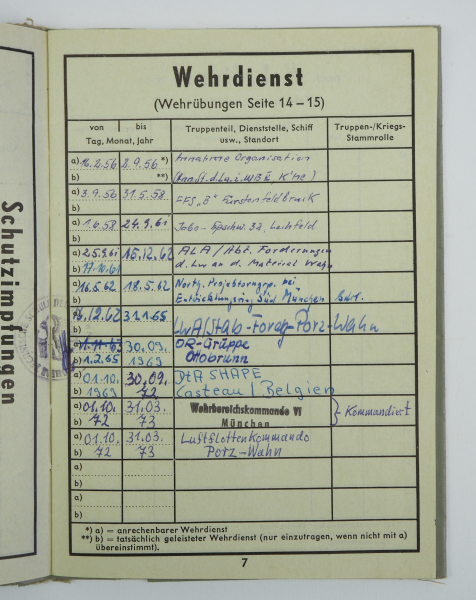 Schutzimpfungen
Wehrdienst
(Wehrübungen Seite 14–15)
von bis Truppenteil, Dienststelle, Schiff Truppen-/Kriegs-
Tag, Monat, Jahr usw., Standort Stammrolle
a) 16.2.56 2.9.56 *) Annahme Organisation
b) **)
a) 3.9.56 31.5.58 FFS „B" Fürstenfeldbruck
b)
a) 1.6.58 24.9.61 Lechfeld
b)
a) 25.9.61 15.12.62 ALA / Abt.
b) d. Lw an d. Wahn
a) 16.5.62 18.5.62
b) Süd München
a) 31.1.65
b) LwA Stab Porz-Wahn
a) 30.09. OR-Gruppe
b) 1.2.65 1969 Ottobrunn
a) 01.10. 30.09. DtA SHAPE
b) 1969 72 Casteau / Belgien
a) 01.10. 31.03. Wehrbereichskommando VI } Kommandiert
b) 72 73 München
a) 01.10. 31.03. Luftflottenkommando
b) 72 73 Porz-Wahn
a)
b)
a)
b)
*) a) = anrechenbarer Wehrdienst
**) b) = tatsächlich geleisteter Wehrdienst (nur einzutragen, wenn nicht mit a)
übereinstimmt).
7